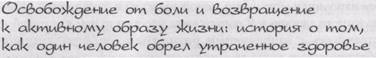 Освобождение от боли и возвращение
к активному образу жизни: история о том,
как один человек обрел утраченное здоровье